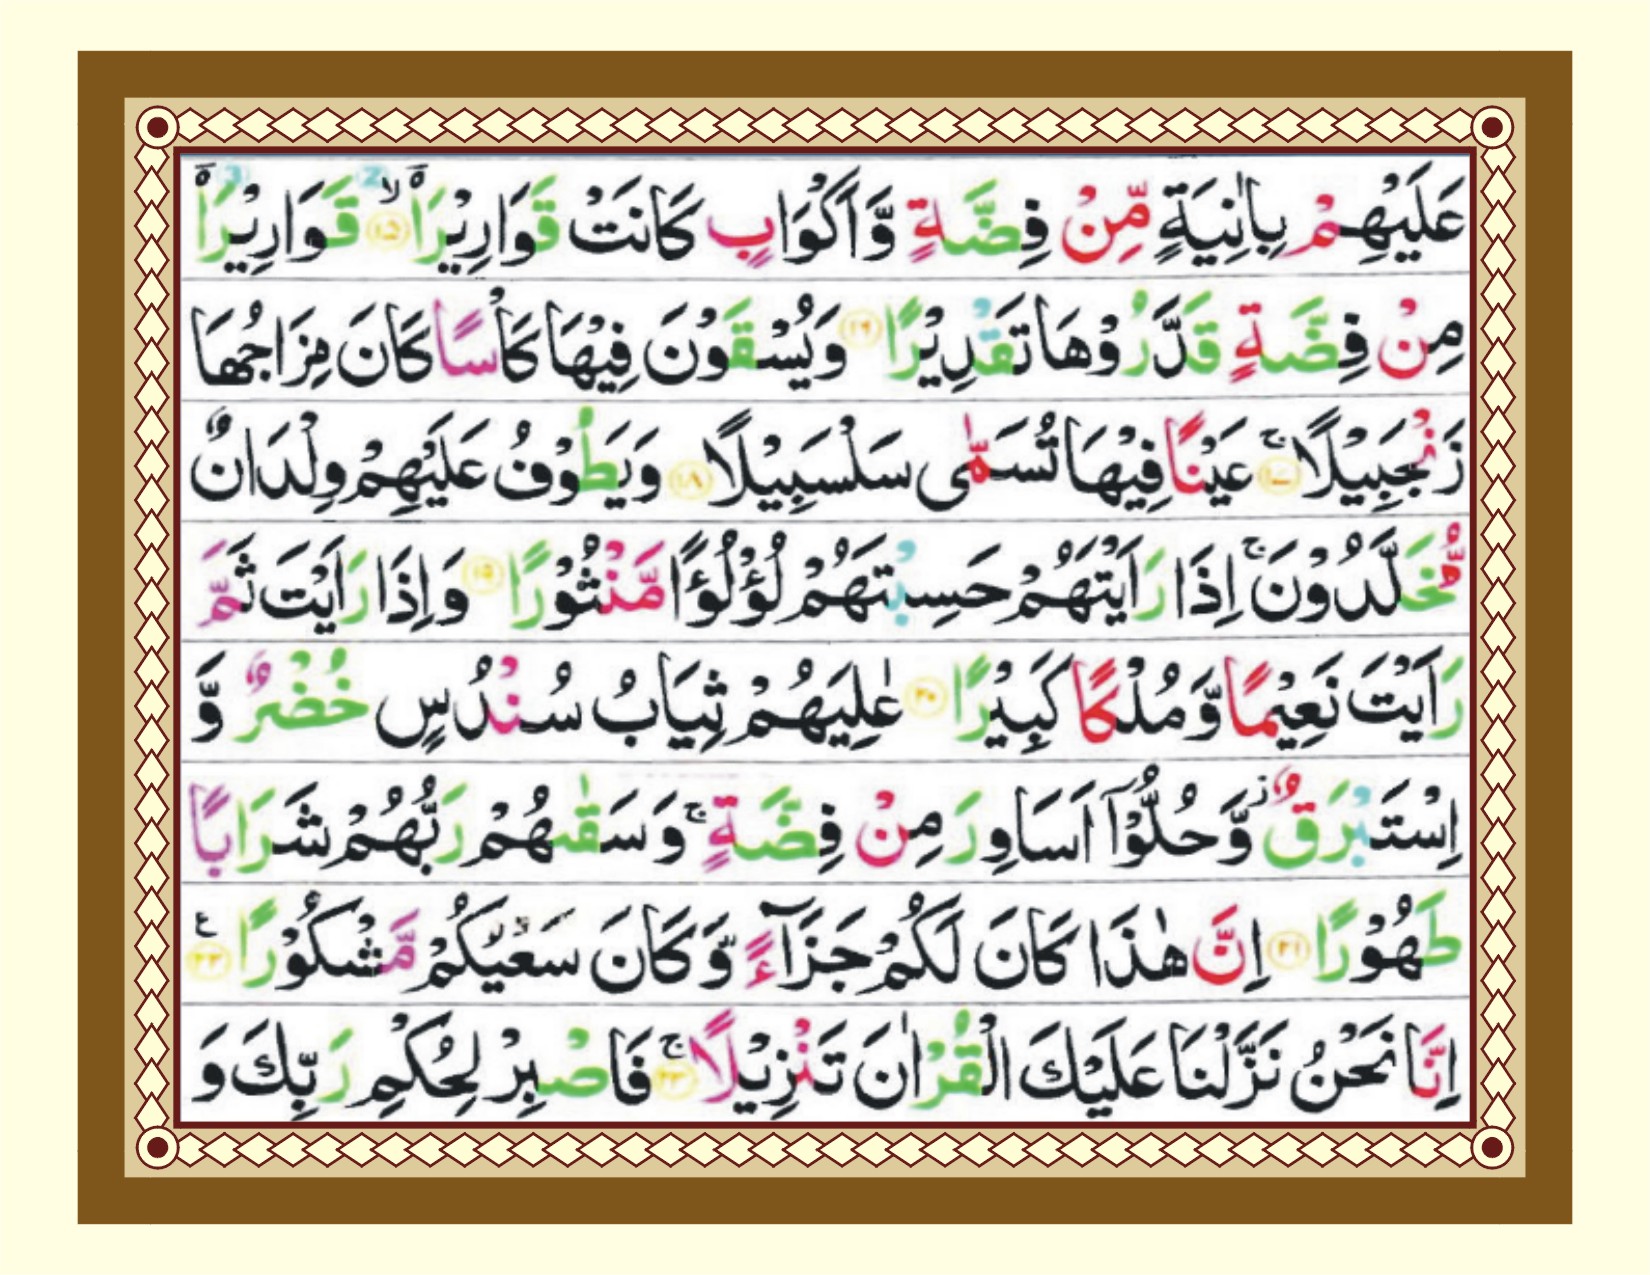 عَلَيْهِمْ بِاٰنِيَةٍ مِّنْ فِضَّةٍ وَّاَكْوَابٍ كَانَتْ قَوَارِيْرَا۠ ۙ‏﴿۱۵﴾ قَوَارِيْرَا۠
مِنْ فِضَّةٍ قَدَّرُوْهَا تَقْدِيْرًا ﴿۱۶﴾ وَيُسْقَوْنَ فِيْهَا كَاْسًا كَانَ مِزَاجُهَا
زَنْجَبِيْلًا ۚ ﴿۱۷﴾ عَيْنًا فِيْهَا تُسَمّٰى سَلْسَبِيْلًا ﴿۱۸﴾ وَيَطُوْفُ عَلَيْهِمْ وِلْدَانٌ
مُّخَلَّدُوْنَ ۚ اِذَا رَاَيْتَهُمْ حَسِبْتَهُمْ لُؤْلُؤًا مَّنْثُوْرًا ﴿۱۹﴾ وَاِذَا رَاَيْتَ ثَمَّ
رَاَيْتَ نَعِيْمًا وَّمُلْكًا كَبِيْرًا ﴿۲۰﴾ عٰلِيَهُمْ ثِيَابُ سُنْدُسٍ خُضْرٌ وَّ
اِسْتَبْرَقٌ ؗ وَّحُلُّوْۤا اَسَاوِرَ مِنْ فِضَّةٍ ۚ وَسَقٰىهُمْ رَبُّهُمْ شَرَابًا
طَهُوْرًا ﴿۲۱﴾ اِنَّ هٰذَا كَانَ لَكُمْ جَزَآءً وَّكَانَ سَعْيُكُمْ مَّشْكُوْرًا ﴿۲۲﴾ ع
اِنَّا نَحْنُ نَزَّلْنَا عَلَيْكَ الْقُرْاٰنَ تَنْزِيْلًا ۚ ﴿۲۳﴾ فَاصْبِرْ لِحُكْمِ رَبِّكَ وَ